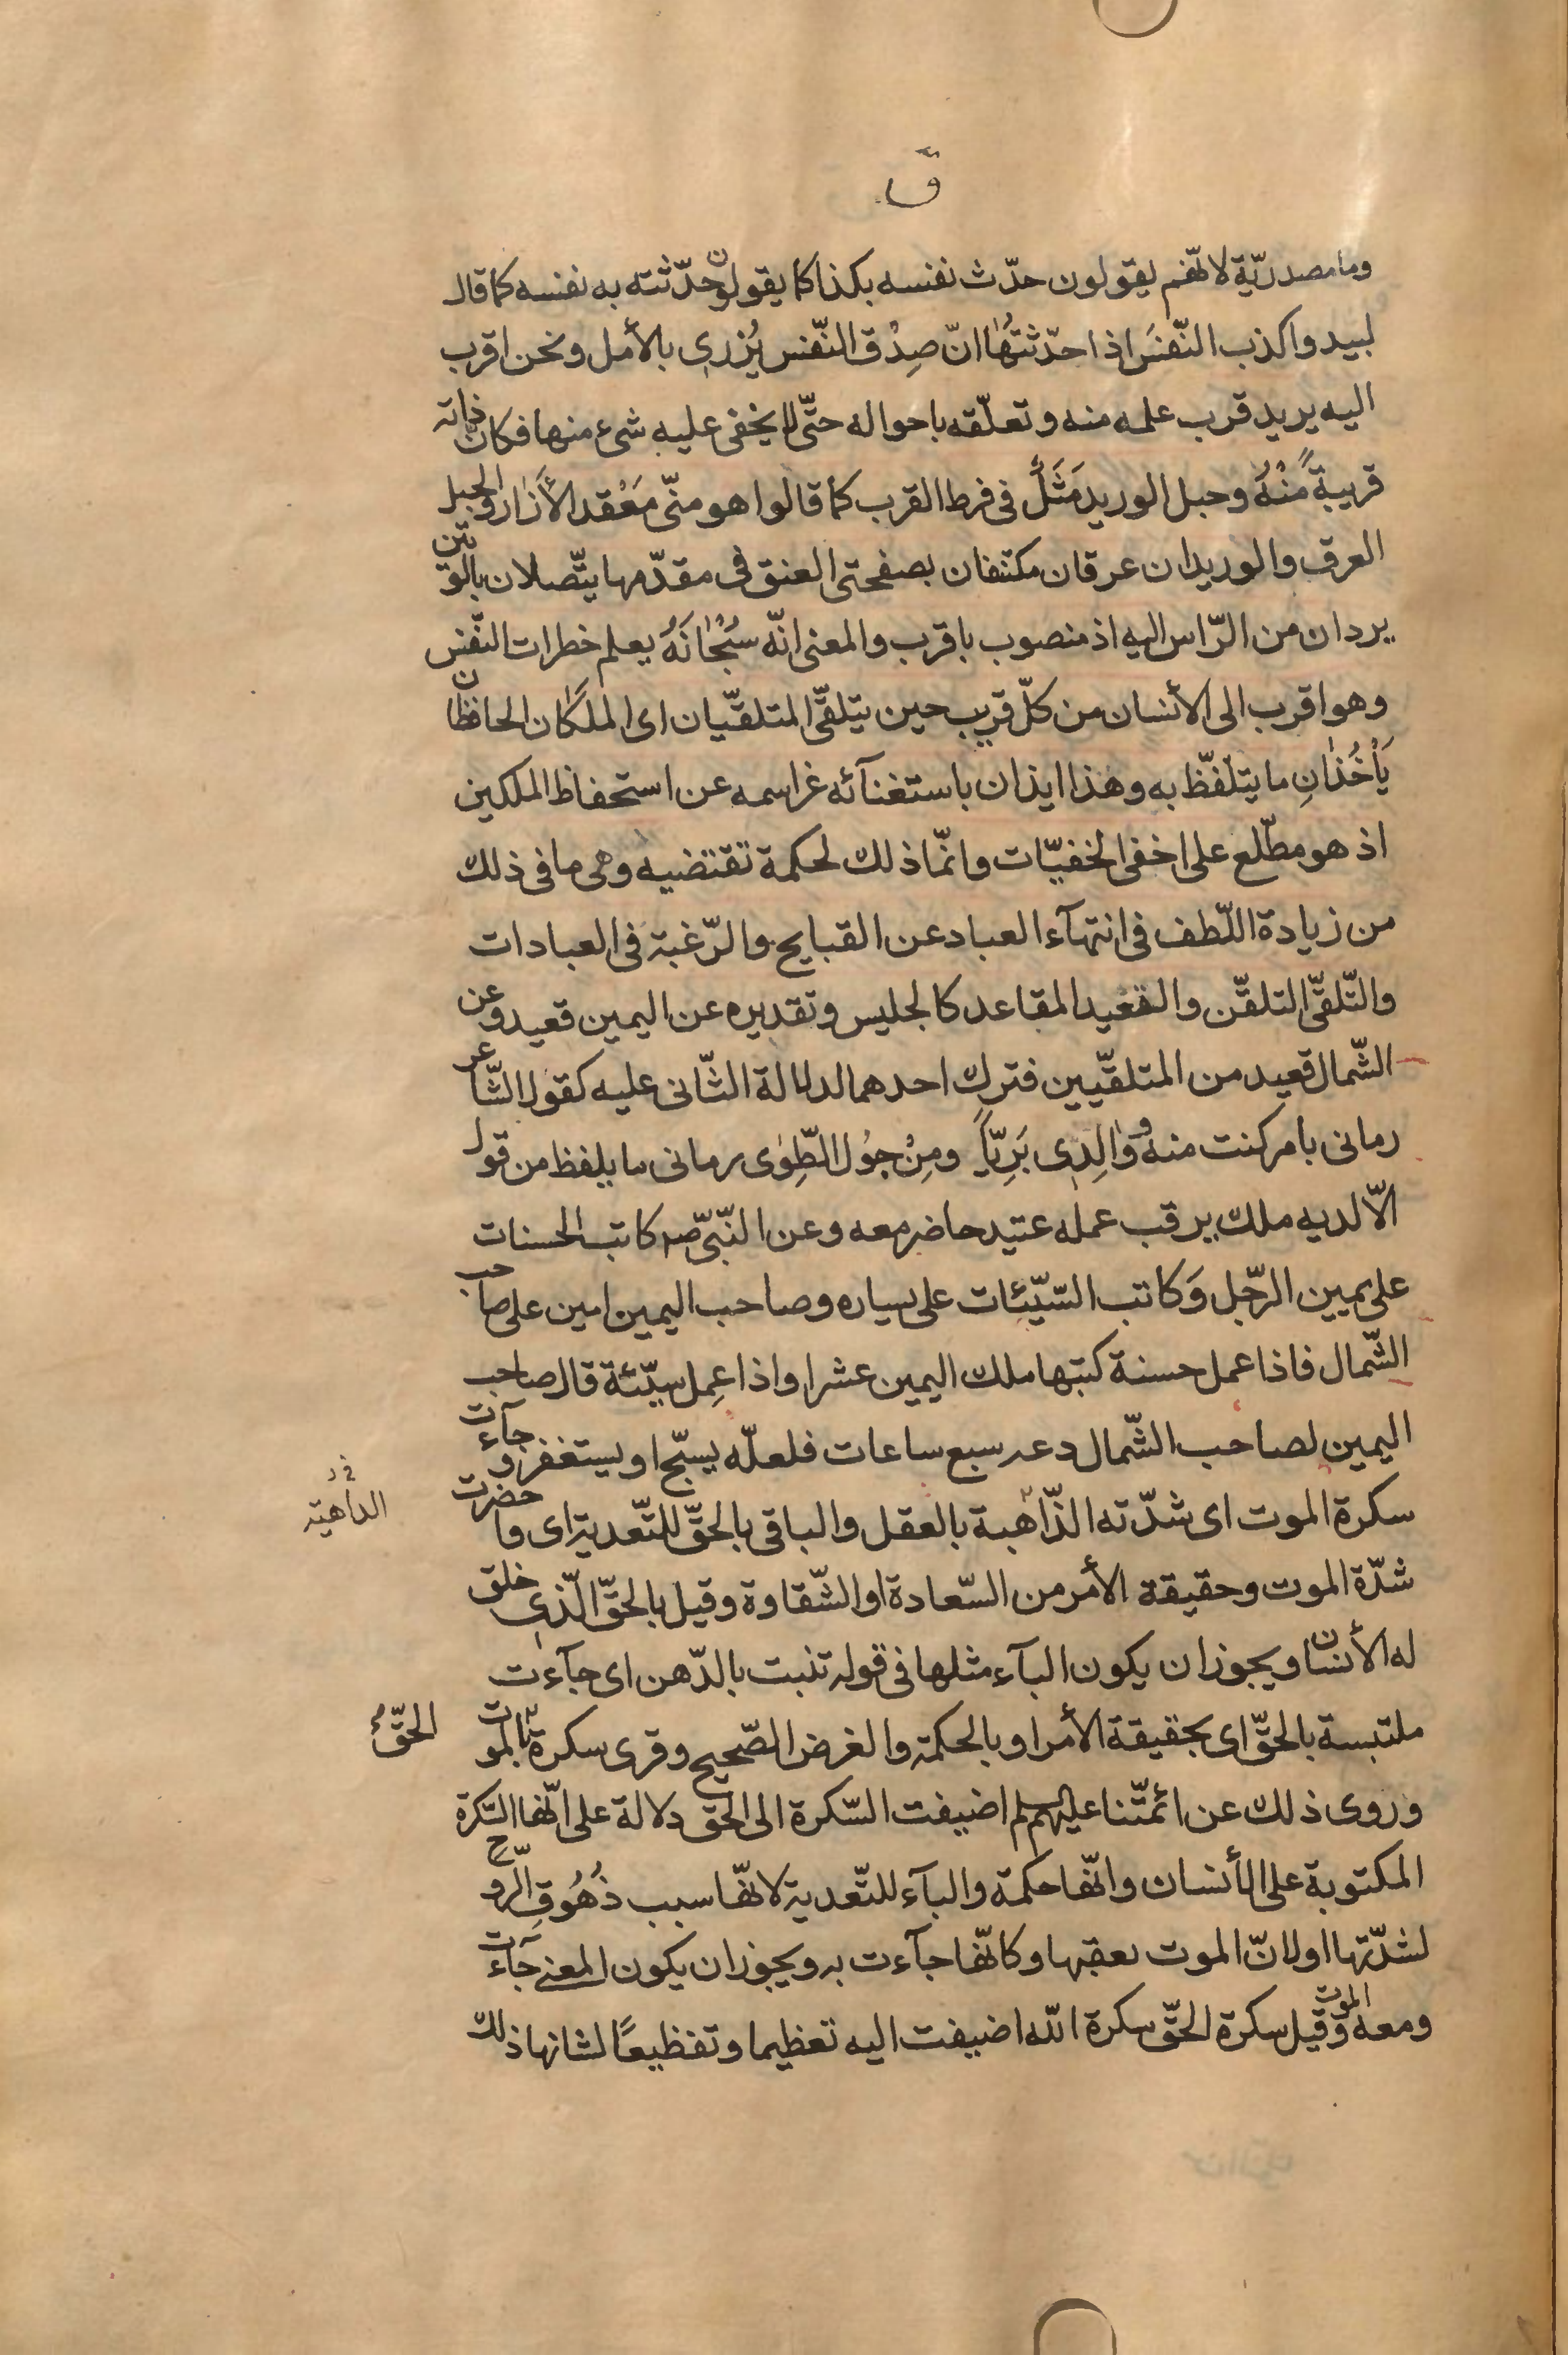 قۤ
وما مصدريّة لانّهم يقولون حدّث نفسه بكذا كما يقولون حدّثته به نفسه كما قال
لبيد واكذب النّفسَ اذا حدّثتَهٰا انّ صِدْقَ النّفس يُزري بالأمل ونحن اقرب
اليه يريد قرب علمه منه وتعلّقه باحواله حتّى لا يخفى عليه شیء منها فكانّ ذاته
قريبةً مِنْهُ وحبل الوريد مَثَلٌ فى فرط القرب كما قالوا هو منّى مَعْقد الأزار والحبل
العرق والوريدان عرقان مكتنفان بصفحتى العنق فى مقدّمها يتّصلان بالوتين
يردان من الرّاس اليه اذ منصوب باقرب والمعنى انّه سُبْحٰانَهُ يعلم خطرات النّفس
وهو اقرب الى الأنسان من كلّ قريب حين يتلقّى المتلقّيان اى الملكان الحافظان
يَأْخُذٰانِ ما يتلفّظ به وهذا ايذان باستغنآئه عزاسمه عن استحفاظ الملكين
اذ هو مطّلع على اخفى الخفيّات وانّما ذلك لحكمة تقتضيه وهى ما فى ذلك
من زيادة اللّطف فى انتهآء العباد عن القبايح والرّغبة فى العبادات
والتّلقّى التلقّن والقعيد المقاعد كالجليس وتقديره عن اليمين قعيد وعن
الشّمال قعيد من المتلقّيين فترك احدهما لدلالة الثّانى عليه كقول الشّاعر
رمانى بامر كنت منه ووٰالِدى بَرِيّاً ومِنْ جُول الطِّوٰى رمانى ما يلفظ من قول
الّا لديه ملك يرقب عمله عتيد حاضر معه وعن النّبىّ صلى كاتب الحسنات
على يمين الرّجل وَكاتب السّيّئات على يساره وصاحب اليمين امين على صاحب
الشّمال فاذا عمل حسنة كتبها ملك اليمين عشرا واذا عمِل سيّئة قال صاحب
اليمين لصاحب الشّمال دعه سبع ساعات فلعلّه يسبّح او يستغفر وجآءت
سكرة الموت اى شدّته الذّاهبة بالعقل والباقى بالحقّ للتّعدية اى واحضرت
الداهية
شدّة الموت وحقيقة الأمر من السّعادة او الشّقاوة وقيل بالحقّ الّذى خلق
له الأنسان ويجوز ان يكون البآء مثلها فى قوله تنبت بالدّهن اى جآءت
ملتبسة بالحقّ اى بحقيقة الأمر او بالحكمة والغرض الصّحيح وقرى سكرة بالموت
الحقّ
وروى ذلك عن ائمّتنا عليهم السلم اضيفت السّكرة الى الحق دلالة على انّها السّكرة
المكتوبة على الأنسان وانّها حكمة والبآء للتّعدية لانّها سبب ذُهُوقِ الرّوح
لشدّتها او لانّ الموت يعقبها وكانّها جآءت به ويجوز ان يكون المعنى جآءت
ومعه الموت وقيل سكرة الحقّ سكرة الله اضيفت اليه تعظيما وتفظيعًا لشانها ذلك